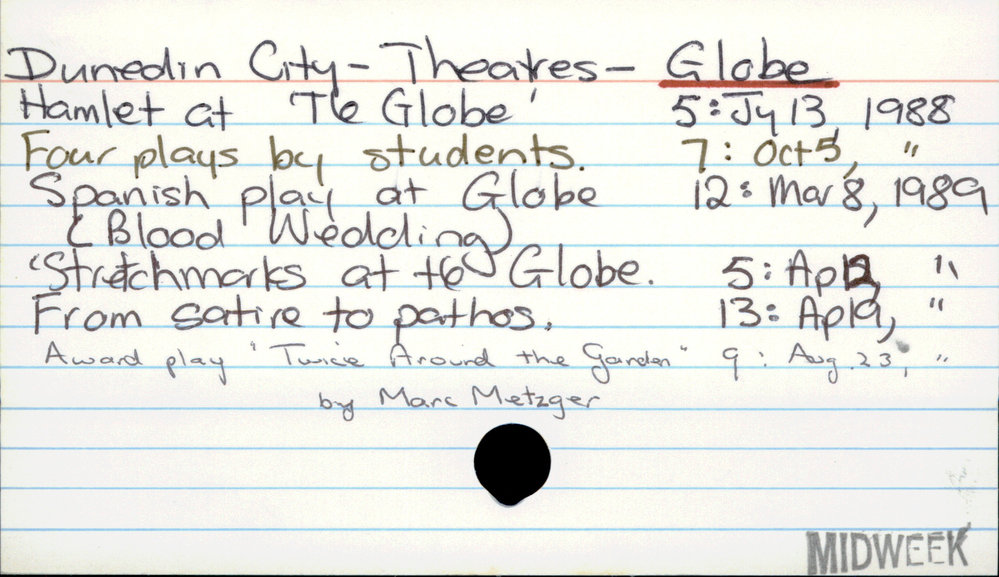 Dunedin City - Theatres - Globe
Hamlet at 'T6 Globe' 5: Jy 13, 1988
Four plays by students. 7: Oct 5, "
Spanish play at Globe 12: Mar 8, 1989
(Blood Wedding)
'Stretchmarks at t6 Globe. 5: Ap 12, "
From satire to pathos. 13: Ap 19, "
Award play "Twice Around the Garden" 9: Aug. 23, "
by Marc Metzger
MIDWEEK